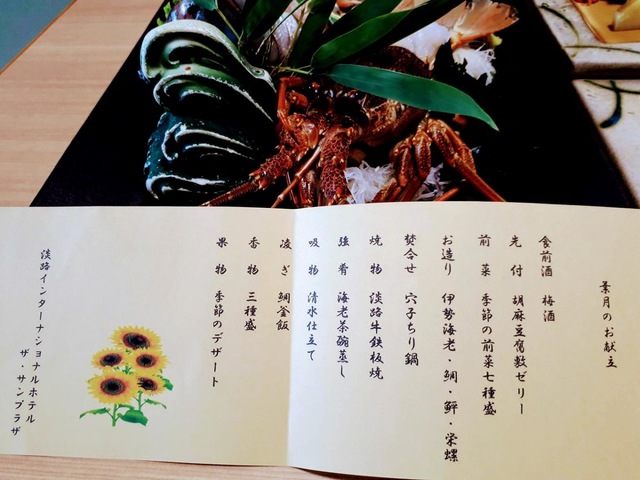 葉月のお献立
食前酒 梅酒
先付 胡麻豆腐敷ゼリー
前菜 季節の前菜七種盛
お造り 伊勢海老・鯛・鮃・栄螺
焚合せ 穴子ちり鍋
焼物 淡路牛鉄板焼
強肴 海老茶碗蒸し
吸物 清水仕立て
凌ぎ 鯛釜飯
香物 三種盛
果物 季節のデザート
淡路インターナショナルホテル
ザ・サンプラザ